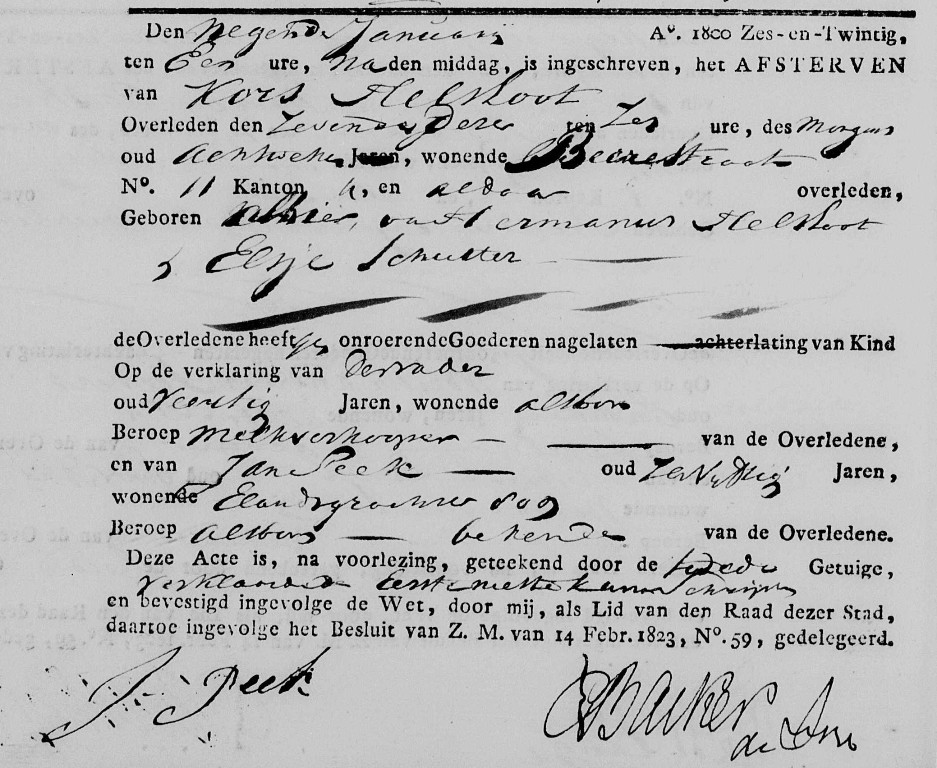 Den Negende Januarij A°. 1800 Zes-en-Twintig,
ten Een ure, Na den middag, is ingeschreven, het AFSTERVEN
van Kors Helskoot
Overleden den Zevende dezer ten Zes ure, des Morgens
oud Acht weken Jaren, wonende Beerestraat
N°. 11 Kanton 4, en aldaar overleden,
Geboren alhier, van Hermanus Helskoot
& Elsje Schutter
de Overledene heeft gs onroerende Goederen nagelaten achterlating van Kind
Op de verklaring van den vader
oud Veertig Jaren, wonende alsboven
Beroep Melkverkooper van de Overledene,
en van Jan Peek oud Jaren,
wonende Elandsgracht 809
Beroep alsboven bekende van de Overledene.
Deze Acte is, na voorlezing, geteekend door de tweede Getuige,
verklarende Eerste niet te kunnen Schrijven
en bevestigd ingevolge de Wet, door mij, als Lid van den Raad dezer Stad,
daartoe ingevolge het Besluit van Z. M. van 14 Febr. 1823, N°. 59, gedelegeerd.
J. Peek
Backer